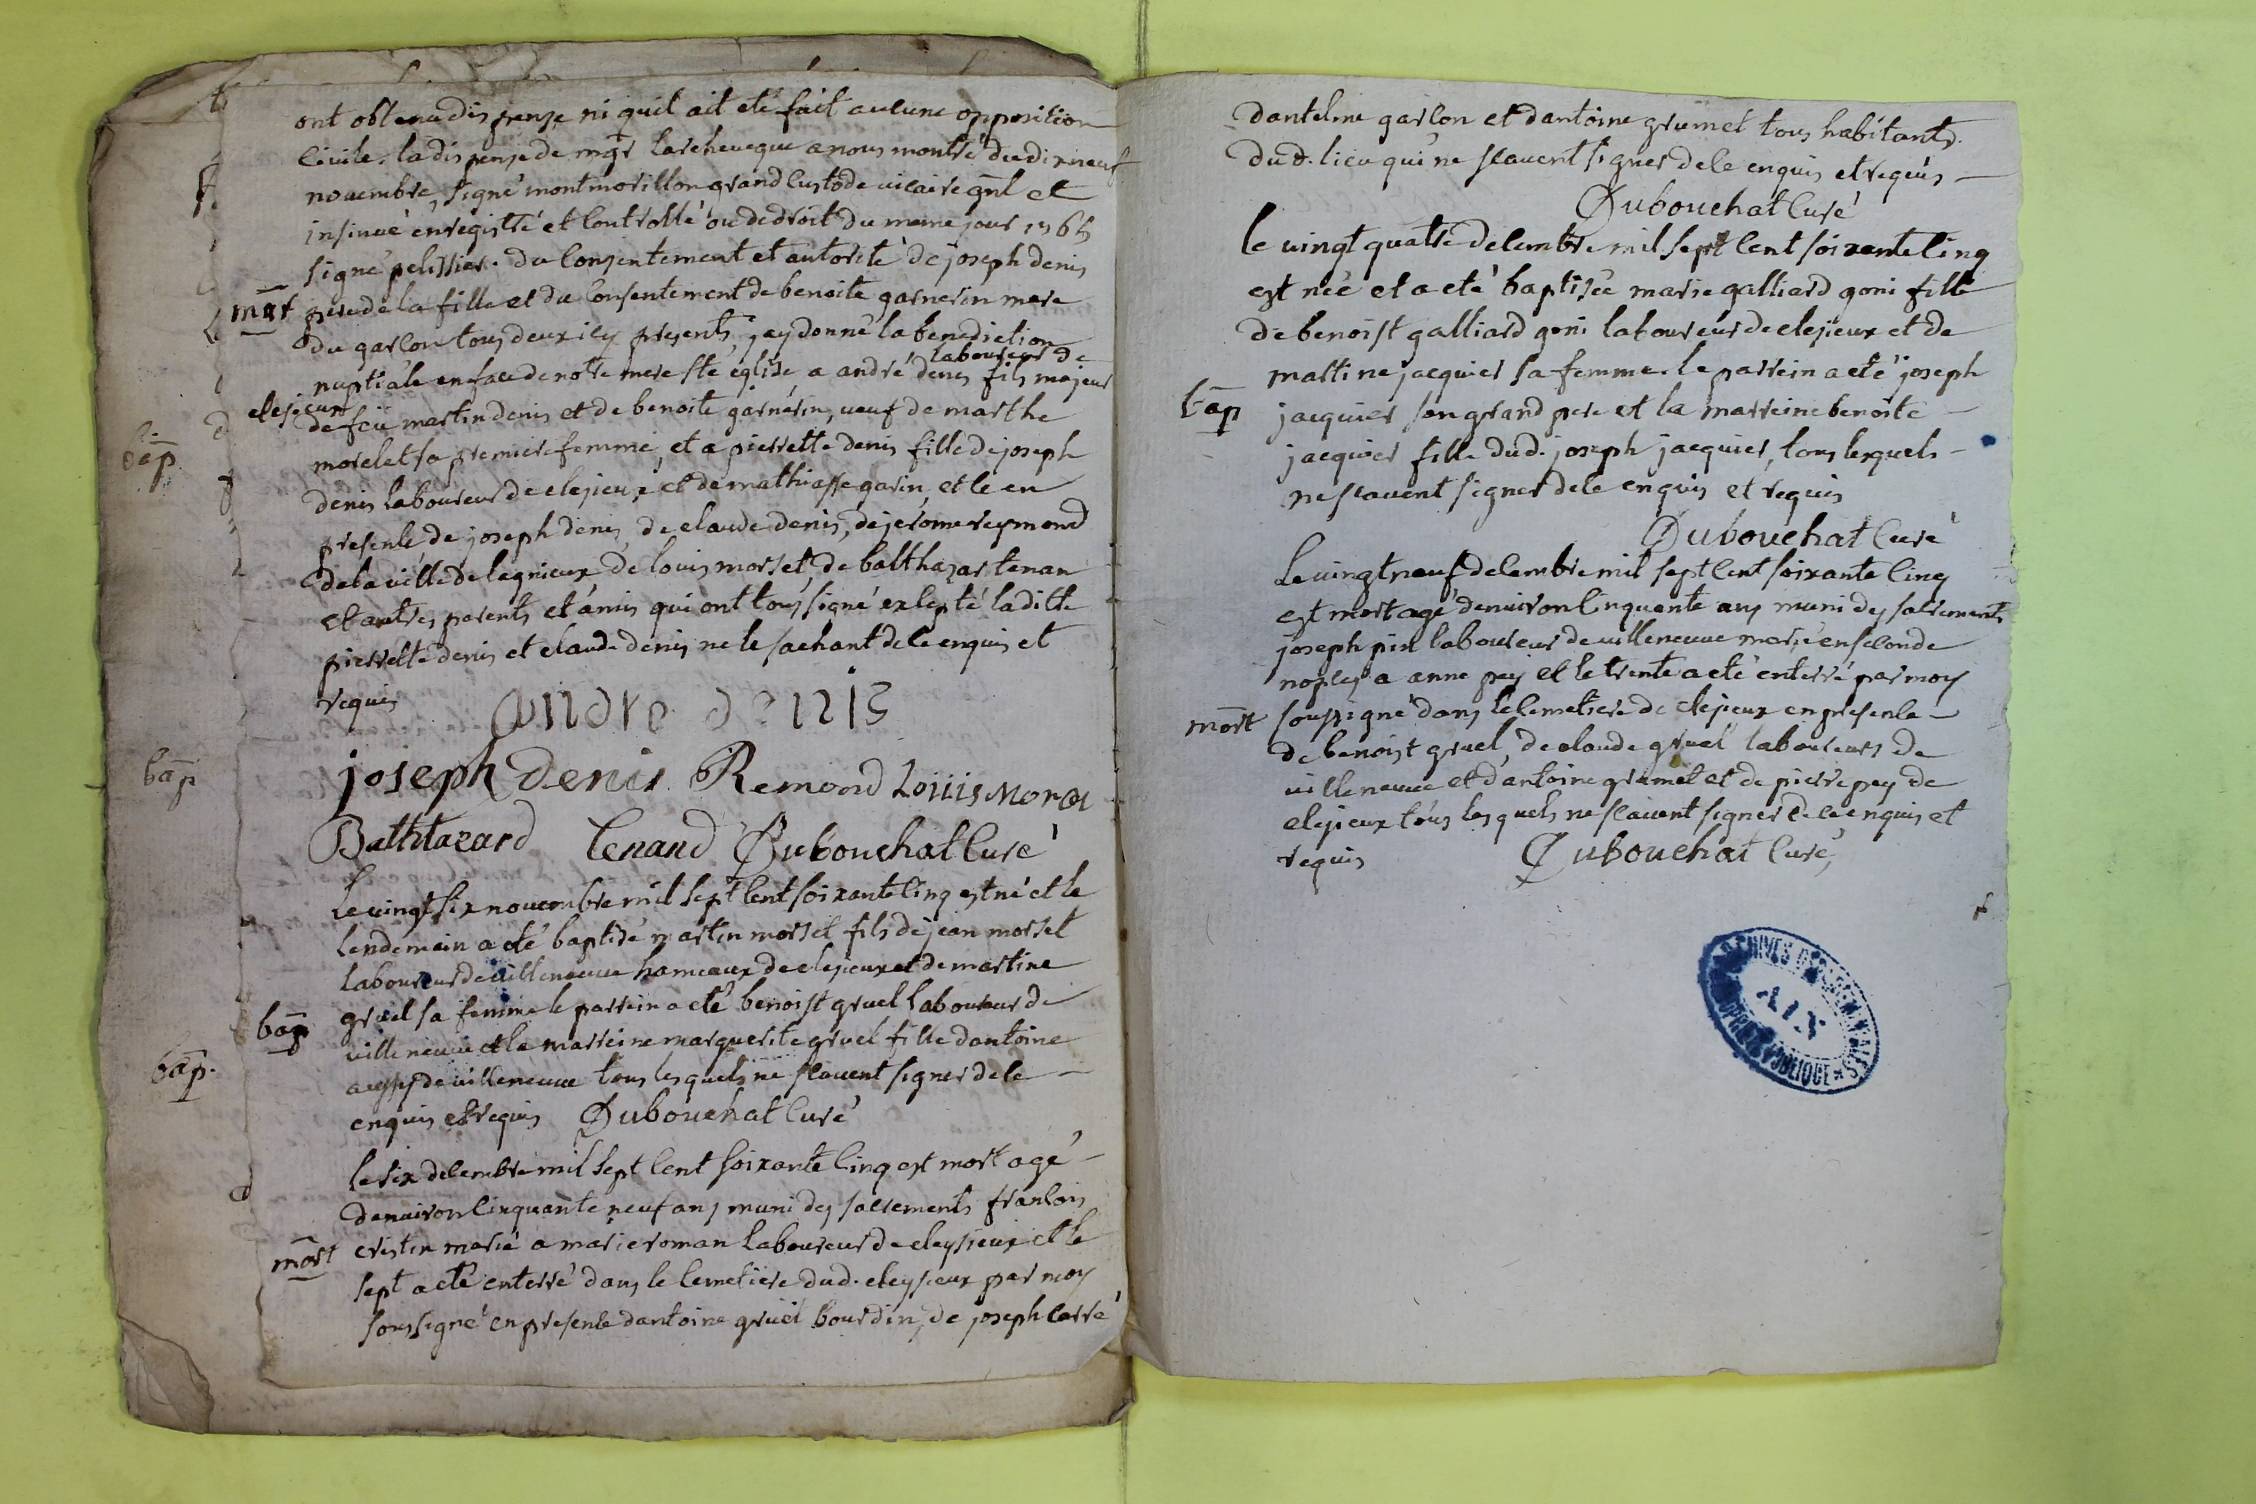 ont obtenu dispense ni quil ait eté fait aulune opposition
Civile. la dispense de mgr larcheveque a nous montré du dix neuf
novembre, signé montmorillon grand Custode vicaire gnl et
insinué enregistré et Controllé ou de droit du meme jour 1765
signé pelissier. du Consentement et autorité de joseph denis
mar pere de la fille et du Consentement de benoite garnerin mere
du garcon tous deux icy presents, jay donné la benediction
nuptiale en face de notre mere Ste église a andré denis fils majeur
laboureur de
elesieux
de feu martin denis et de benoite garnerin, veuf de marthe
morelet sa premiere femme, et a pierrette denis fille de joseph
denis laboureur de elejieux et de mathiasse garin, et le en
presence de joseph denis, de claude denis, de jerome reymond
de la ville de lagnieux de louis morset, de balthazar tenan
et autres parents et amis qui ont tous signé excepté laditte
pierrette denis et claude denis ne le sachant de ce enquis et
requis
andre denis
joseph denis Remond Louis Morel
Balthtazard tenand Dubouchat Curé
Le vingt six novembre mil sept cent soixante Cinq est né et le
lendemain a eté baptisé martin morset fils de jean morset
laboureur de villeneuve hameaux de elejieux et de martine
bap gruel sa femme le parrein a eté benoist gruel laboureur de
villeneuve et la marreine marguerite gruel fille dantoine
aussy de villeneuve tous lesquels ne scavent signer de ce
enquis et requis Dubouchat Curé
le six decembre mil sept Cent soixante Cinq est mort agé
denviron Cinquante neuf ans muni des sacrements francois
mort cristin marié a marie roman laboureur de eleysieux et le
sept a eté enterré dans le Cemetiere dud. eleysieux par moy
soussigné en presence dantoine gruel bourdin, de joseph carré
bap
bap
bap.
dantelme garcon et dantoine grumet tous habitants.
dud. lieu qui ne scavent signer de ce enquis et requis
Dubouchat Curé
le vingt quatre decembre mil sept Cent soixante Cinq
est née et a eté baptisée marie galliard goni fille
de benoist galliard goni laboureur de elejieux et de
martine jacquier sa femme. le parrein a eté joseph
bap jacquier son grand pere et la marreine benoite
jacquier fille dud. joseph jacquier, tous lesquels
ne scavent signer de ce enquis et requis
Dubouchat Curé
Le vingt neuf decembre mil sept Cent soixante Cinq
est mort agé denviron Cinquante ans muni des sacrements
joseph pin laboureur de villeneuve marié en seconde
nopces a anne pey et le trente a eté enterré par moy
mort soussigné dans le Cemetiere de elejieux en presence
de benoist gruel, de claude gruel laboureurs de
villeneuve et dantoine grumet et de pierre pey de
elejieux tous lesquels ne scavent signer de ce enquis et
requis Dubouchat Curé,
ARCHIVES DÉPARTEMENTALES
AIN
PROPRIÉTÉ PUBLIQUE